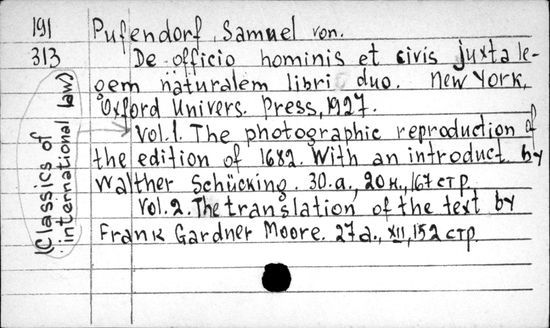 191 Pufendorf, Samuel von.
313 De officio hominis et civis juxta le-
gem naturalem libri duo. New York,
Oxford Univers. Press, 1927.
Vol.1. The photographic reproduction of
the edition of 1682. With an introduct. by
Walther Schücking. 30.a., 20н., 167 стр.
Vol.2. The translation of the text by
Frank Gardner Moore. 27a., XII, 152 стр.
(Classics of
international law)